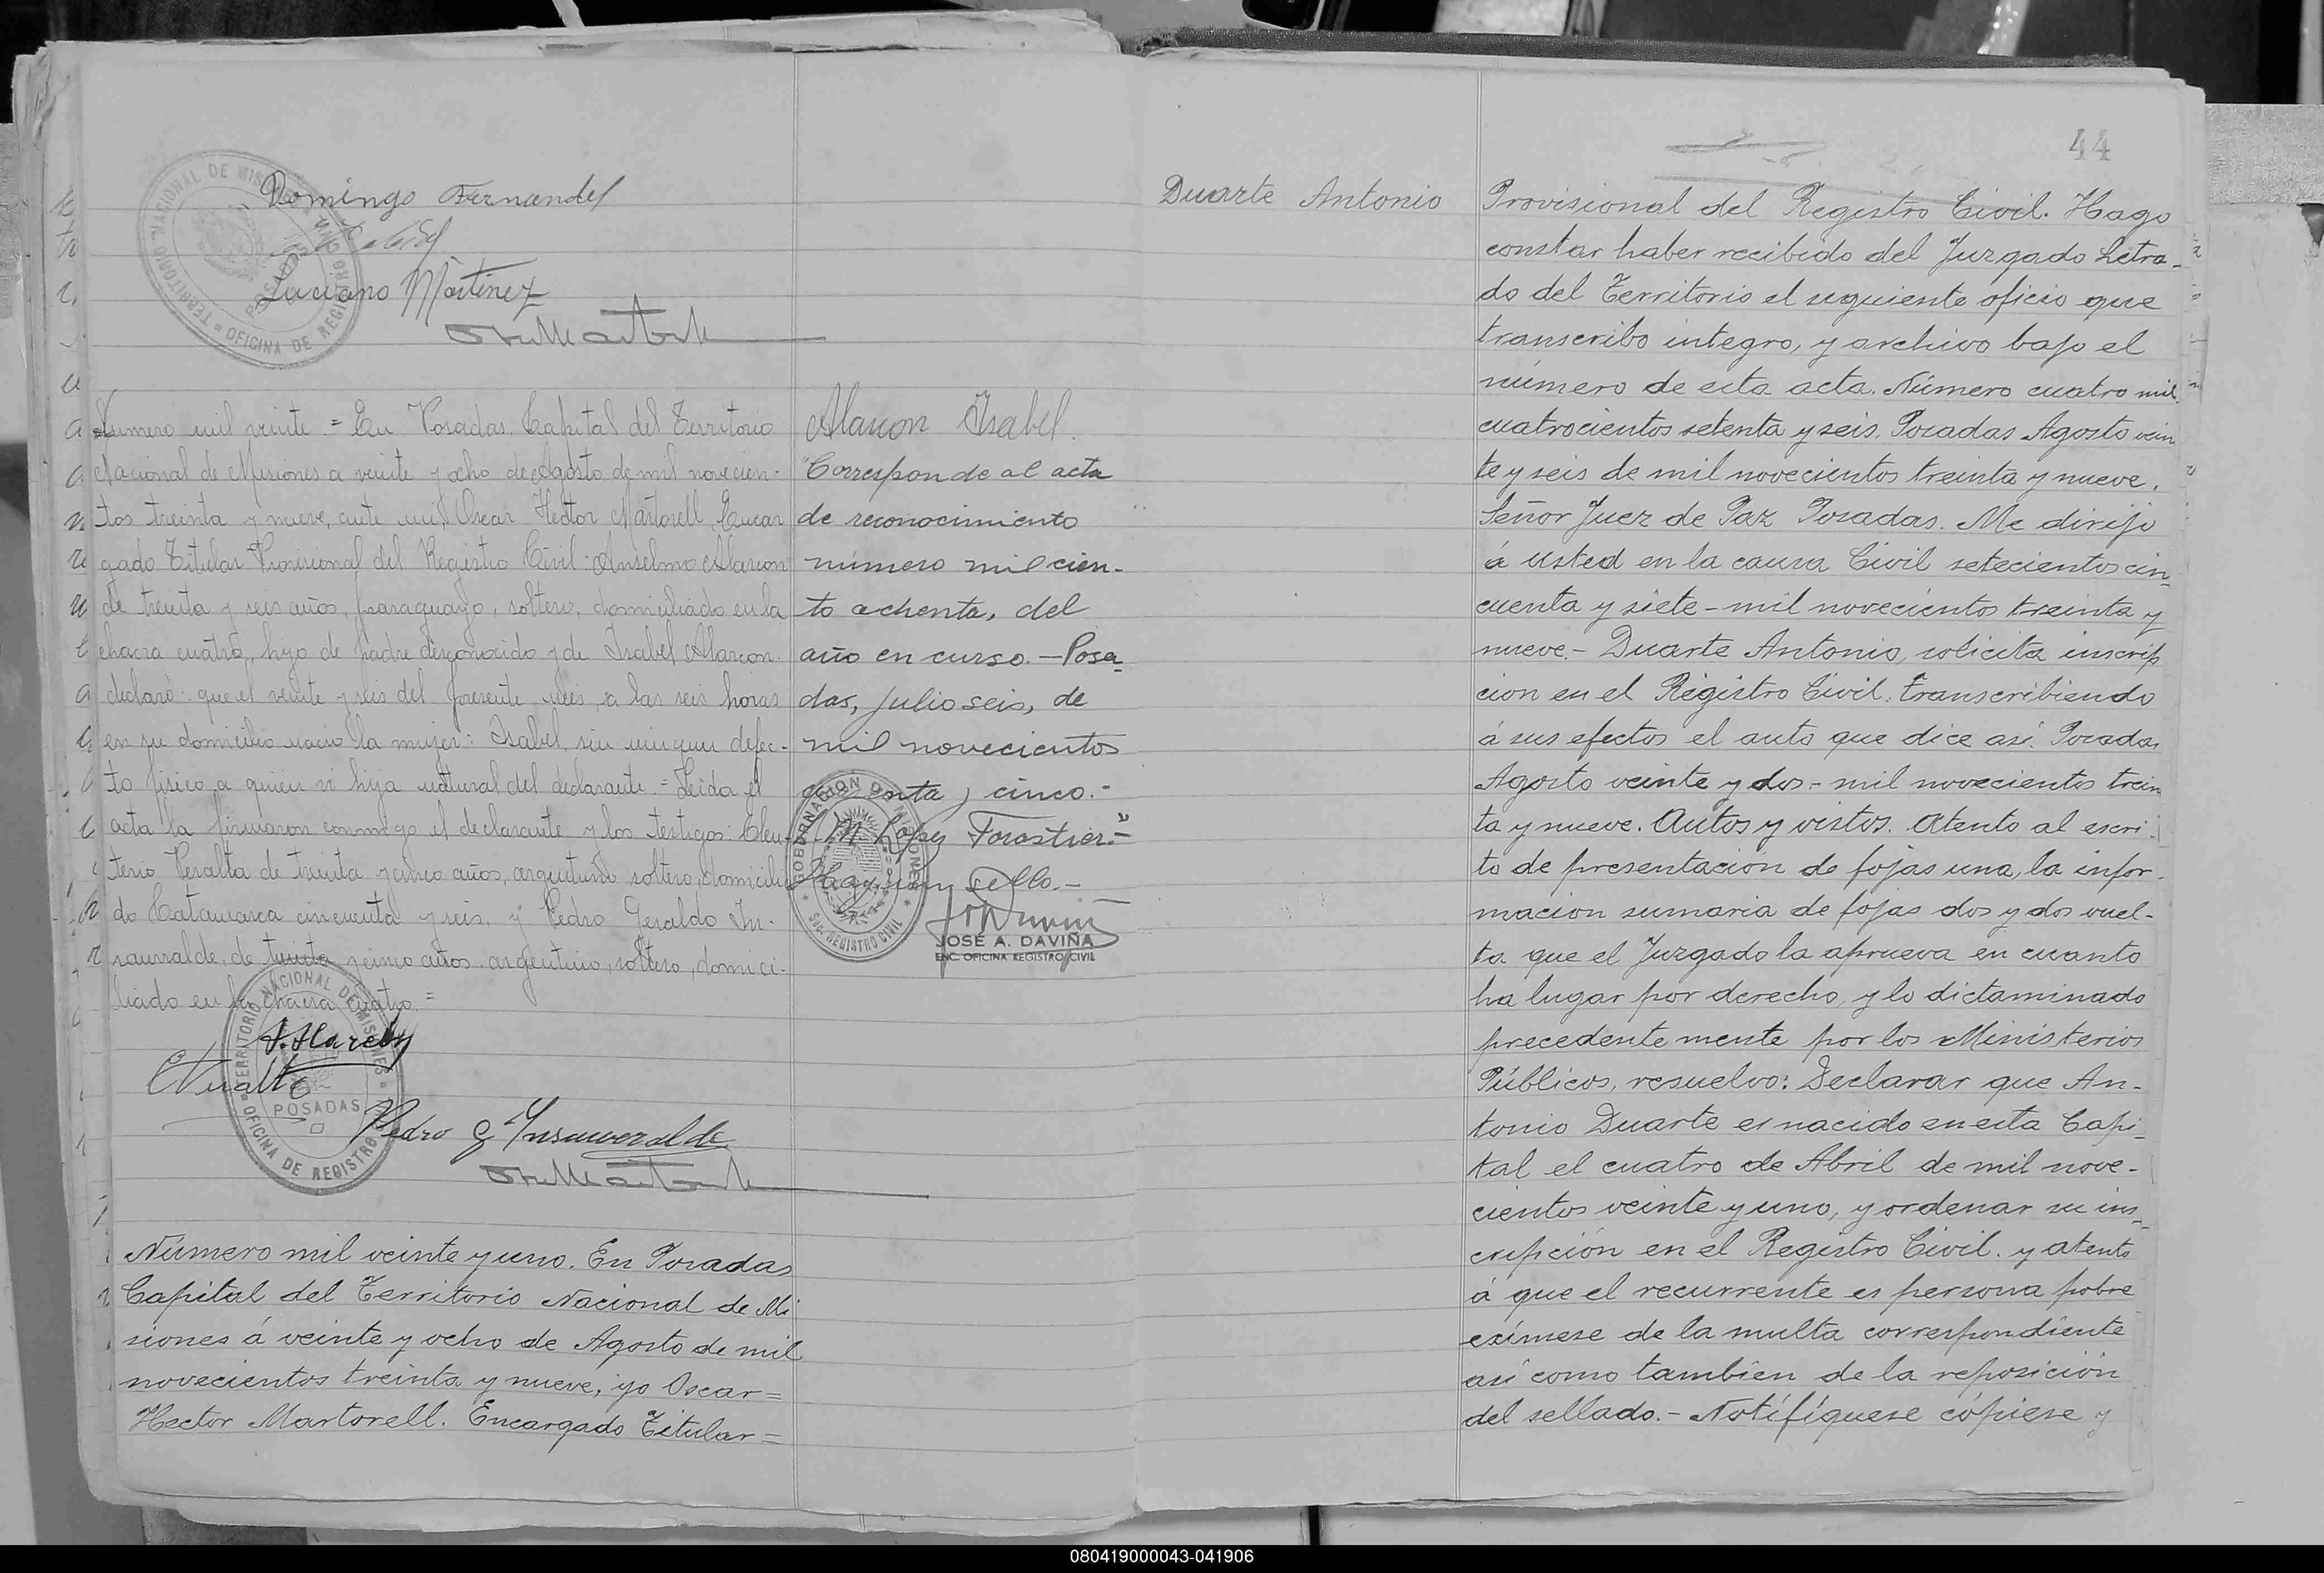 Domingo Fernandez
Luciano Martinez
Numero mil veinte.= En Posadas, Capital del Territorio
Nacional de Misiones a veinte y ocho de Agosto de mil novecien-
tos treinta y nueve, ante mi, Oscar Hector Martorell, Encar
gado Titular Provisional del Registro Civil: Anselmo Alarcon
de treinta y seis años, paraguayo, soltero, domiciliado en la
chacra cuatro, hijo de padre desconocido y de Isabel Alarcon.
declaró: que el veinte y seis del presente mes, a las seis horas
en su domicilio nació la mujer: Isabel, sin ningun defec-
to fisico, a quien vi hija natural del declarante.= Leida el
acta la firmaron conmigo el declarante y los testigos: Eleu-
terio Peralta de treinta y cinco años, argentino soltero, domicilia
do Catamarca cincuenta y seis, y Pedro Geraldo In-
saurralde, de treinta y cinco años, argentino, soltero, domici-
liado en la chacra cuatro.=
POSADAS
Pedro G Ynsaurralde
TERRITORIO NACIONAL DE MISIONES = OFICINA DE REGISTRO
Número mil veinte y uno. En Posadas
Capital del Territorio Nacional de Mi
siones á veinte y ocho de Agosto de mil
novecientos treinta y nueve, yo Oscar=
Hector Martorell. Encargado Titular=
Alarcon Isabel.
Corresponde al acta
de reconocimiento
número mil cien-
to ochenta, del
año en curso.-Posa-
das, julio seis, de
mil novecientos
y cinco.-
Lopez Forastier.-
Hay un sello.-
GOBERNACION DE MISIONES
SEC. REGISTRO CIVIL
JOSÉ A. DAVIÑA
ENC. OFICINA REGISTRO CIVIL
44
Duarte Antonio
Provisional del Registro Civil. Hago
constar haber recibido del Juzgado Letra-
do del Territorio el siguiente oficio que
transcribo integro, y archivo bajo el
número de esta acta. Número cuatro mil
cuatrocientos setenta y seis. Posadas Agosto vein
te y seis de mil novecientos treinta y nueve.
Señor Juez de Paz Posadas. Me dirijo
á Usted en la causa Civil setecientos cin-
cuenta y siete-mil novecientos treinta y
nueve.- Duarte Antonio, solicita inscrip
cion en el Registro Civil. transcribiendo
á sus efectos el auto que dice asi. Posadas
Agosto veinte y dos-mil novecientos trein
ta y nueve. Autos y vistos. Atento al escri-
to de presentacion de fojas una, la infor-
macion sumaria de fojas dos y dos vuel-
ta que el Juzgado la aprueva en cuanto
ha lugar por derecho, y lo dictaminado
precedentemente por los Ministerios
Públicos, resuelvo: Declarar que An-
tonio Duarte es nacido en esta Capi-
tal el cuatro de Abril de mil nove-
cientos veinte y uno, y ordenar su ins-
cripción en el Registro Civil. y atento
á que el recurrente es persona pobre
exímese de la multa correspondiente
asi como tambien de la reposición
del sellado.- Notifíquese cópiese y
080419000043-041906